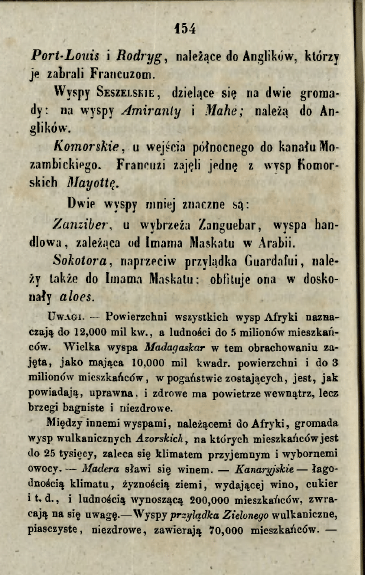 154
Port-Louis i Rodryg, należące do Anglików, którzy
je zabrali Francuzom.
Wyspy Seszelskie, dzielące się na dwie groma-
dy: na wyspy Amiranty i Mahe; należą do An-
glików.
Komorskie, u wejścia północnego do kanału Mo-
zambickiego. Francuzi zajęli jednę z wysp Komor-
skich Mayottę.
Dwie wyspy mniej znaczne są:
Zanziber, u wybrzeża Zanguebar, wyspa han-
dlowa, zależąca od Imama Maskatu w Arabii.
Sokotora, naprzeciw przylądka Guardafui, nale-
ży także do Imama Maskatu: obfituje ona w dosko-
nały aloes.
Uwagi. — Powierzchni wszystkich wysp Afryki nazna-
czają do 12,000 mil kw., a ludności do 5 milionów mieszkań-
ców. Wielka wyspa Madagaskar w tem obrachowaniu za-
jęta, jako mająca 10,000 mil kwadr. powierzchni i do 3
milionów mieszkańców, w pogaństwie zostających, jest, jak
powiadają, uprawna, i zdrowe ma powietrze wewnątrz, lecz
brzegi bagniste i niezdrowe.
Między innemi wyspami, należącemi do Afryki, gromada
wysp wulkanicznych Azorskich, na których mieszkańców jest
do 25 tysięcy, zaleca się klimatem przyjemnym i wybornemi
owocy. — Madera sławi się winem. — Kanaryjskie — łago-
dnością klimatu, żyznością ziemi, wydającej wino, cukier
i t. d., i ludnością wynoszącą 200,000 mieszkańców, zwra-
cają na się uwagę.—Wyspy przylądka Zielonego wulkaniczne,
piasczyste, niezdrowe, zawierają 70,000 mieszkańców. —